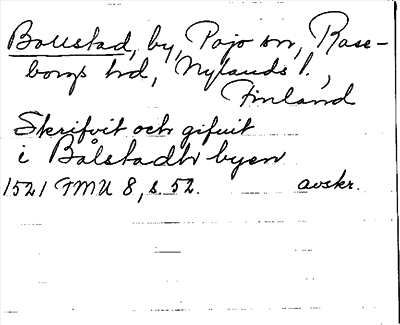 Bollstad, by, Pojo sn, Rase-
borgs hd, Nylands l.,
Finland
Skrifvit och gifuit
i Bålstadh byen
1521 FMU 8, s. 52. avskr.